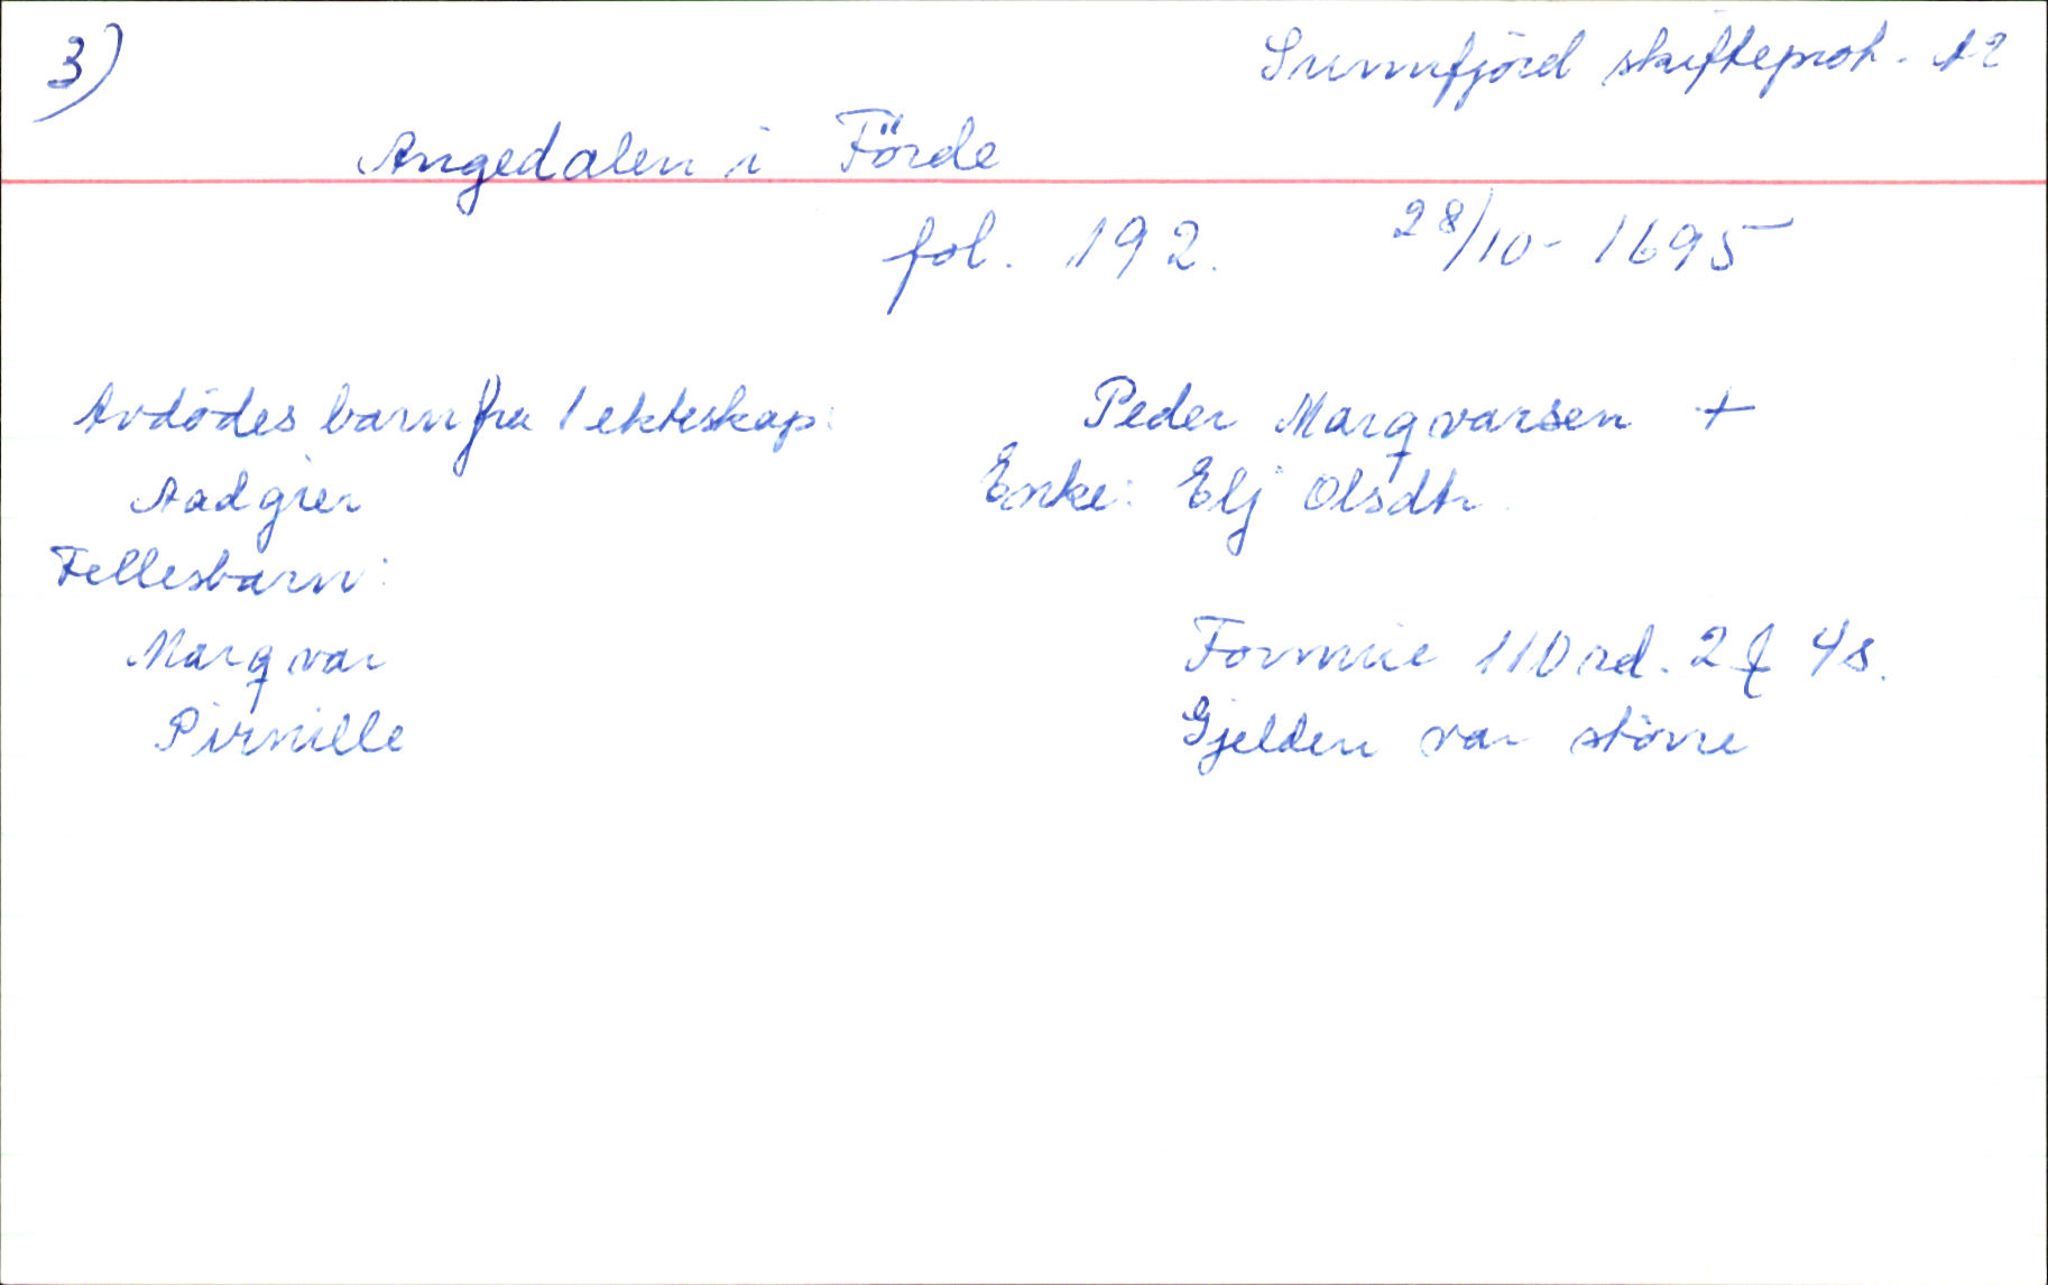 3)
Sunnfjörd skifteprot. A2
Angedalen i Förde
fol. 192. 28/10-1695
Avdödes barn fra 1 ekteskap:
Aadgier
Fellesbarn:
Marqvar
Pirnille
Peder Marqvarsen +
Enke: Elj Olsdtr.
Formue 110 rd. 2 ₰ 4 s.
Gjelden var större